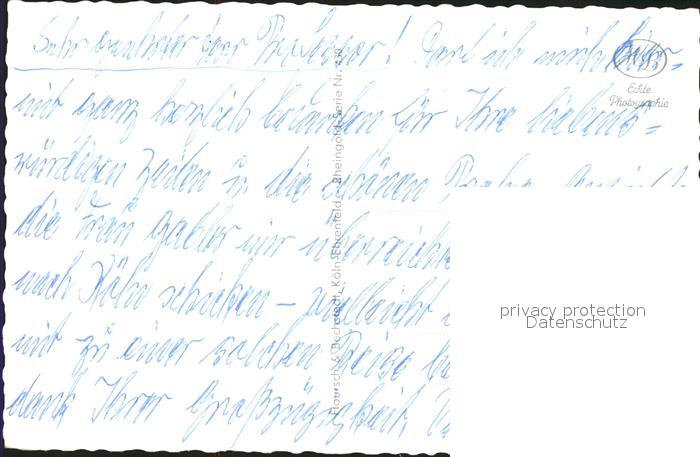 Sehr geehrter Herr Professor! Darf ich mich hier-
mit ganz herzlich bedanken für Ihre liebens-
würdigen Zeilen u. die schönen
die Frau Gabler mir überreichte
nach Köln schicken – vielleicht
mit zu einer solchen Reise
dank Ihrer Großzügigkeit,
Echte
Photographie
Hoursch & Bechstedt, Köln-Ehrenfeld
Rheingold-Serie Nr.
privacy protection
Datenschutz